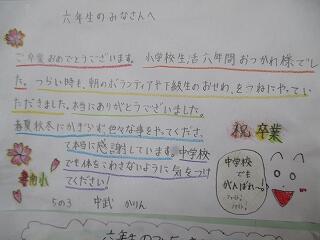 六年生のみなさんへ
ご卒業おめでとうございます。小学校生活六年間おつかれ様でし
た。つらい時も、朝のボランティアや下級生のおせわ、をつねにやってい
ただきました。本当にありがとうございました。
春夏秋冬にかぎらず色々な事をやってくださ
て本当に感謝しています。中学校
でも体をこわさないように気をつけ
てください。
祝卒業
中学校
でも
がんばれ〜
5の3 中武 かりん
六年生のみ